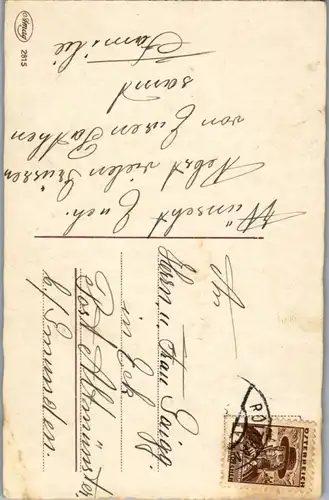 Wünscht Euch.
Nebst vielen Grüssen
von Euren Pathen
samt
Familie
An
Herrn u. Frau Gaigg
in Eck
Post Altmünster,
b/ Gmunden.
Amag
2815
ÖSTERREICH